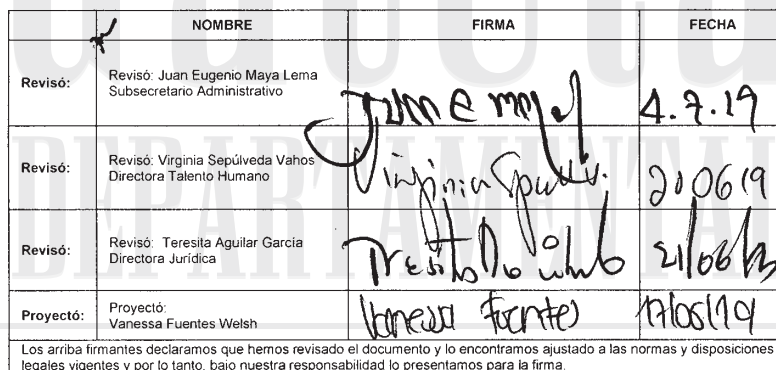 NOMBRE FIRMA FECHA
Revisó: Revisó: Juan Eugenio Maya Lema
Subsecretario Administrativo
Juan E Maya L 4.7.19
Revisó: Revisó: Virginia Sepúlveda Vahos
Directora Talento Humano
Virginia 200619
Revisó: Revisó: Teresita Aguilar García
Directora Jurídica
21/06/19
Proyectó: Proyectó:
Vanessa Fuentes Welsh
Vanessa Fuentes
Los arriba firmantes declaramos que hemos revisado el documento y lo encontramos ajustado a las normas y disposiciones
legales vigentes y por lo tanto, bajo nuestra responsabilidad lo presentamos para la firma.
DEPARTAMENTAL